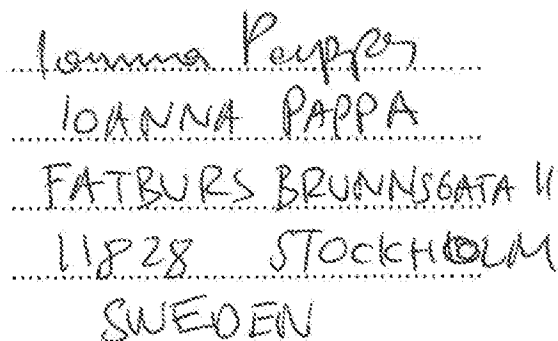 Ioanna Pappa
IOANNA PAPPA
FATBURS BRUNNSGATA 11
11828 STOCKHOLM
SWEDEN